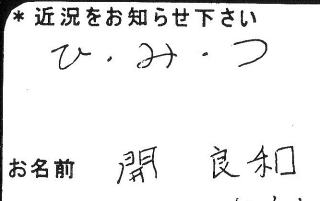 *近況をお知らせ下さい
ひ・み・つ
お名前 開 良和